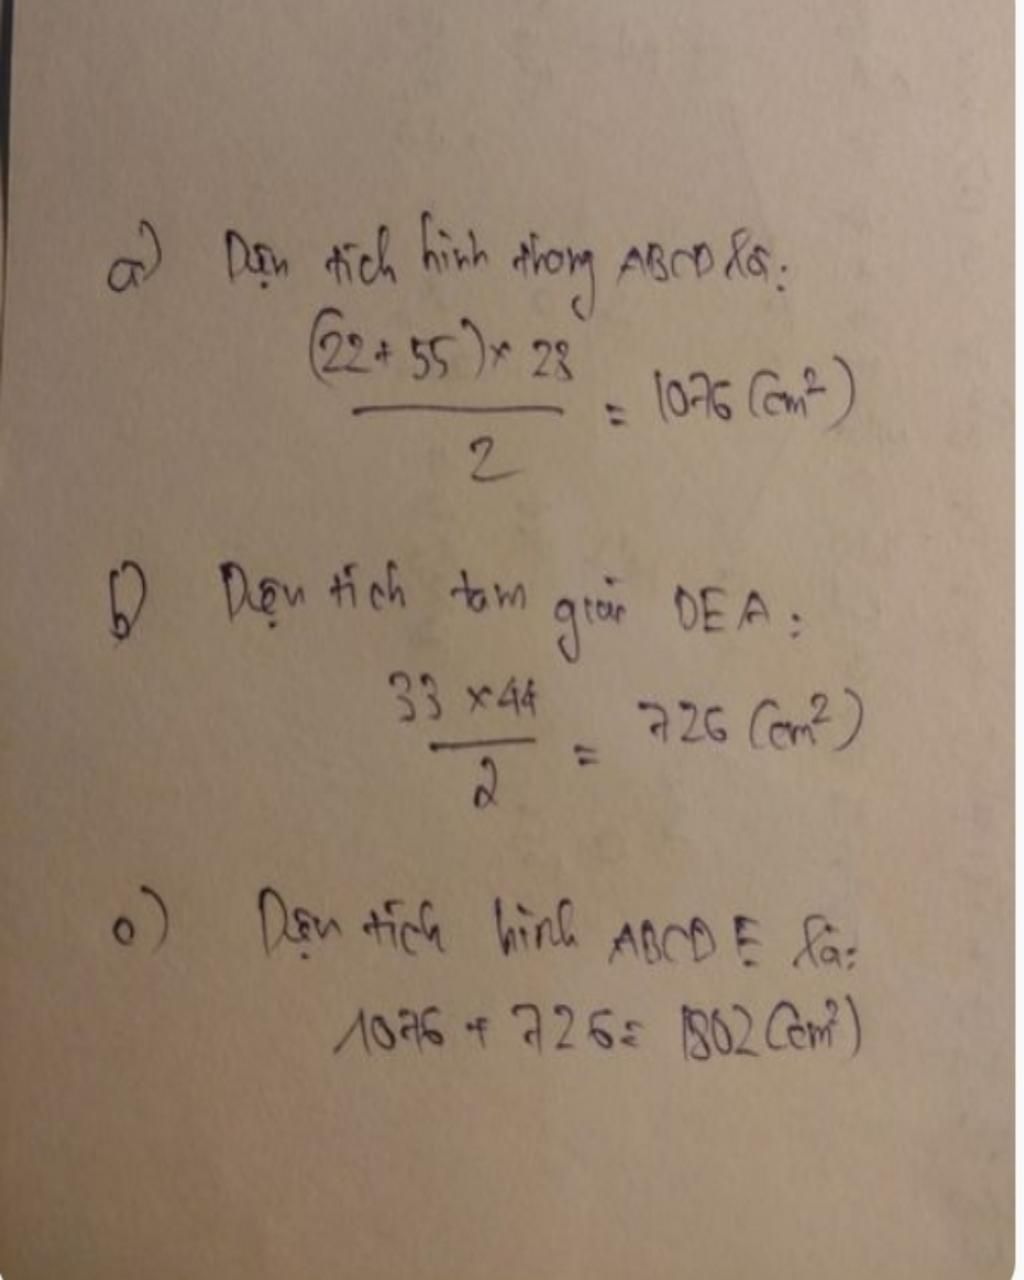 a) Diện tích hình thang ABCD là:
(22 + 55) × 28
= 1076 (cm²)
2
b) Diện tích tam giác DEA:
33 × 44
= 726 (cm²)
2
c) Diện tích hình ABCDE là:
1076 + 726 = 1802 (cm²)